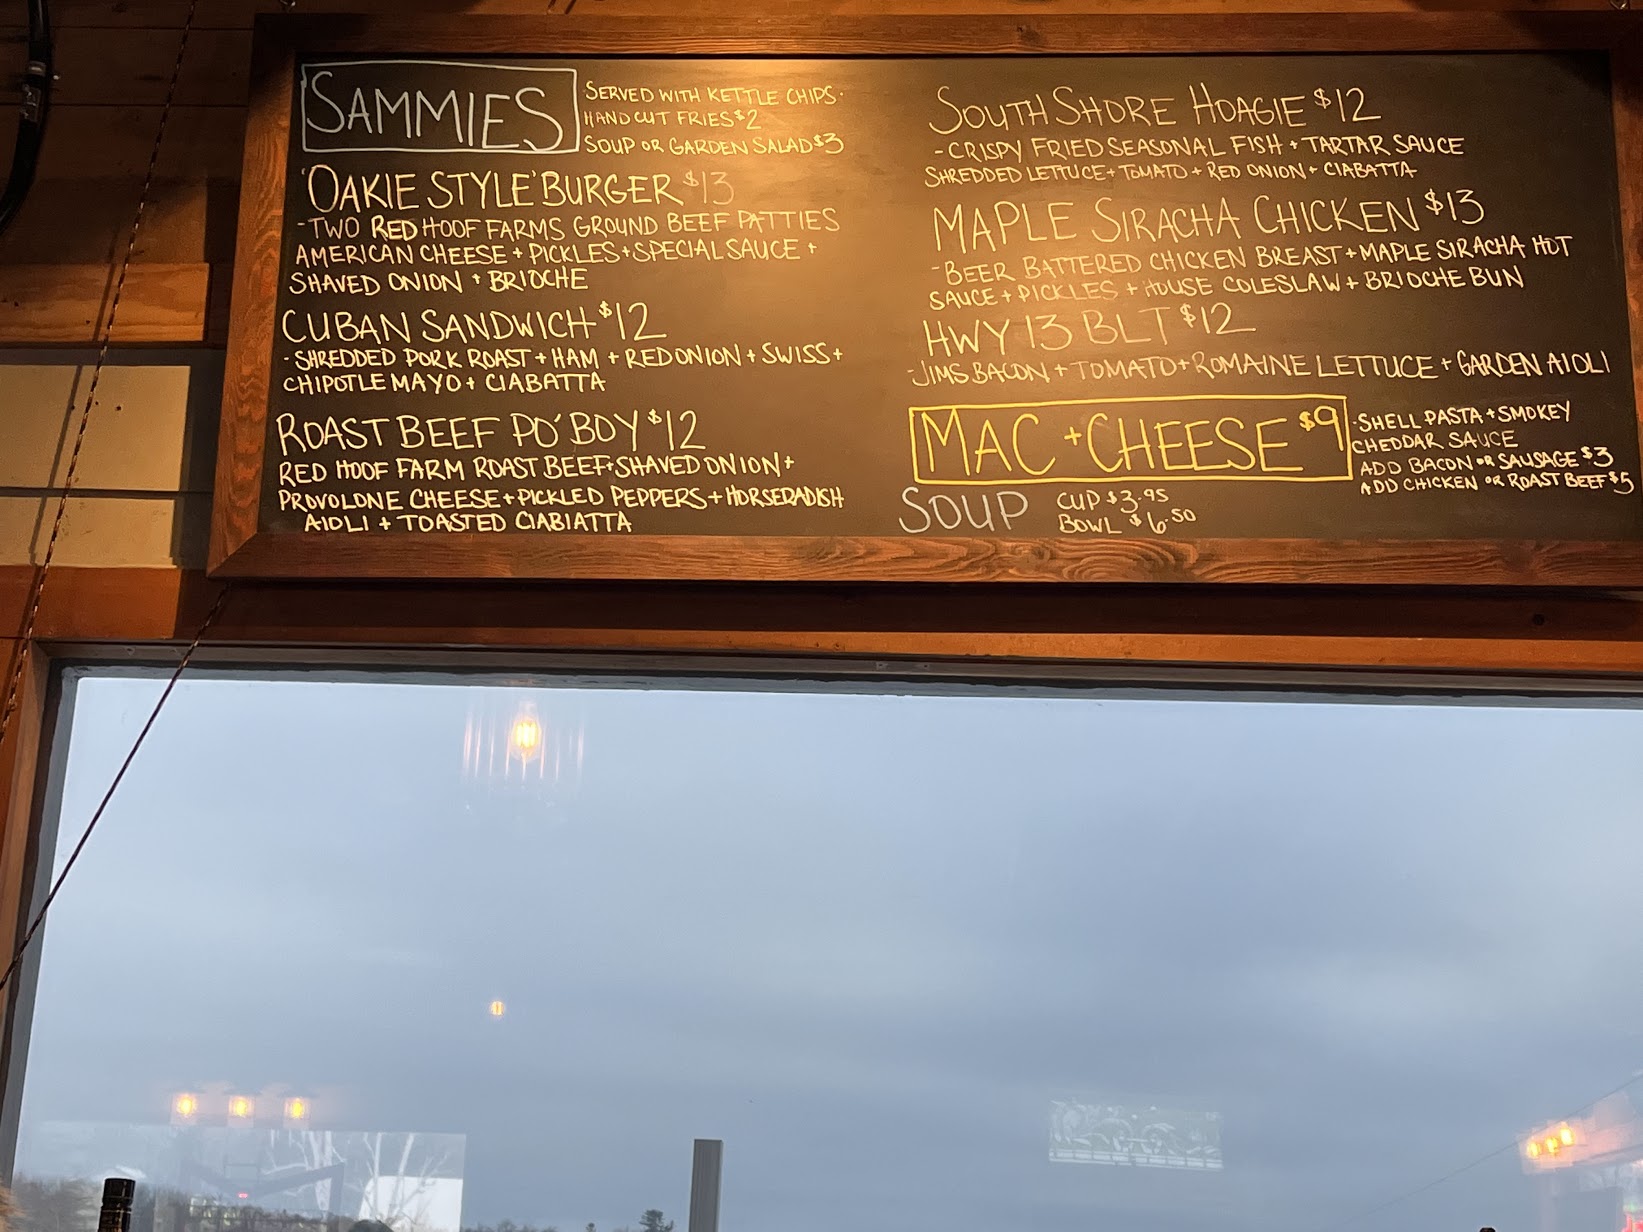 SAMMIES
SERVED WITH KETTLE CHIPS.
HAND CUT FRIES $2
SOUP OR GARDEN SALAD $3
'OAKIE STYLE' BURGER $13
-TWO RED HOOF FARMS GROUND BEEF PATTIES
AMERICAN CHEESE + PICKLES + SPECIAL SAUCE +
SHAVED ONION + BRIOCHE
CUBAN SANDWICH $12
-SHREDDED PORK ROAST + HAM + RED ONION + SWISS +
CHIPOTLE MAYO + CIABATTA
ROAST BEEF PO'BOY $12
RED HOOF FARM ROAST BEEF + SHAVED ONION +
PROVOLONE CHEESE + PICKLED PEPPERS + HORSERADISH
AIOLI + TOASTED CIABIATTA
SOUTH SHORE HOAGIE $12
-CRISPY FRIED SEASONAL FISH + TARTAR SAUCE
SHREDDED LETTUCE + TOMATO + RED ONION + CIABATTA
MAPLE SIRACHA CHICKEN $13
-BEER BATTERED CHICKEN BREAST + MAPLE SIRACHA HOT
SAUCE + PICKLES + HOUSE COLESLAW + BRIOCHE BUN
HWY 13 BLT $12
-JIMS BACON + TOMATO + ROMAINE LETTUCE + GARDEN AIOLI
MAC + CHEESE $9
-SHELL PASTA + SMOKEY
CHEDDAR SAUCE
ADD BACON OR SAUSAGE $3
ADD CHICKEN OR ROAST BEEF $5
SOUP
CUP $3.95
BOWL $6.50